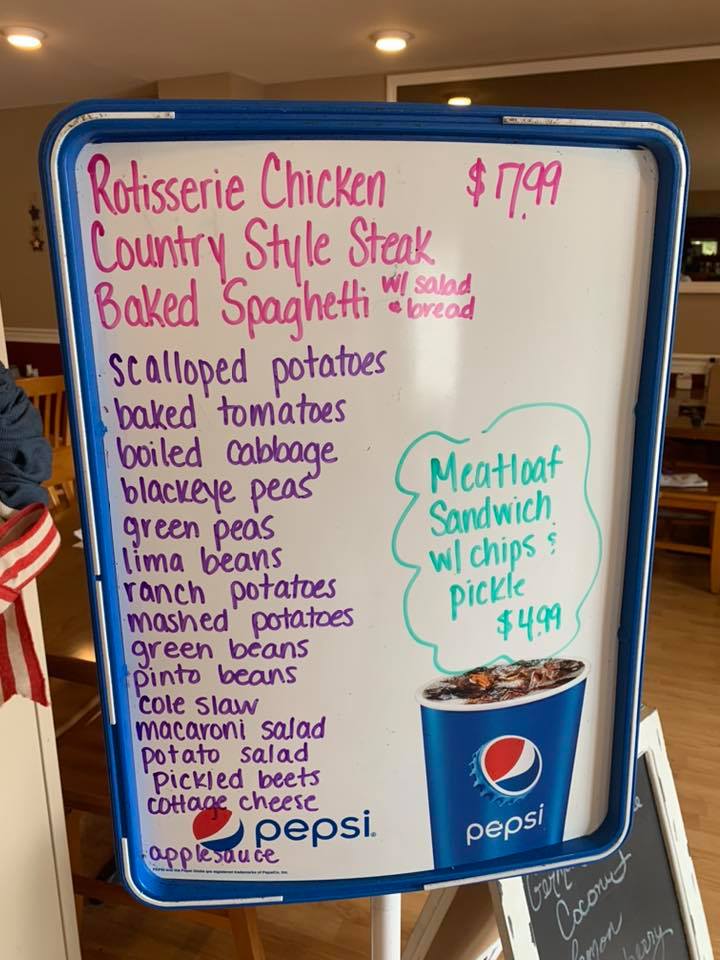 Rotisserie Chicken $17.99
Country Style Steak
Baked Spaghetti w/ salad & bread
scalloped potatoes
baked tomatoes
boiled cabbage
blackeye peas
green peas
lima beans
ranch potatoes
mashed potatoes
green beans
pinto beans
cole slaw
macaroni salad
potato salad
Pickled beets
cottage cheese
applesauce
Meatloaf
Sandwich
w/ chips &
pickle
$4.99
pepsi
pepsi
Coconut